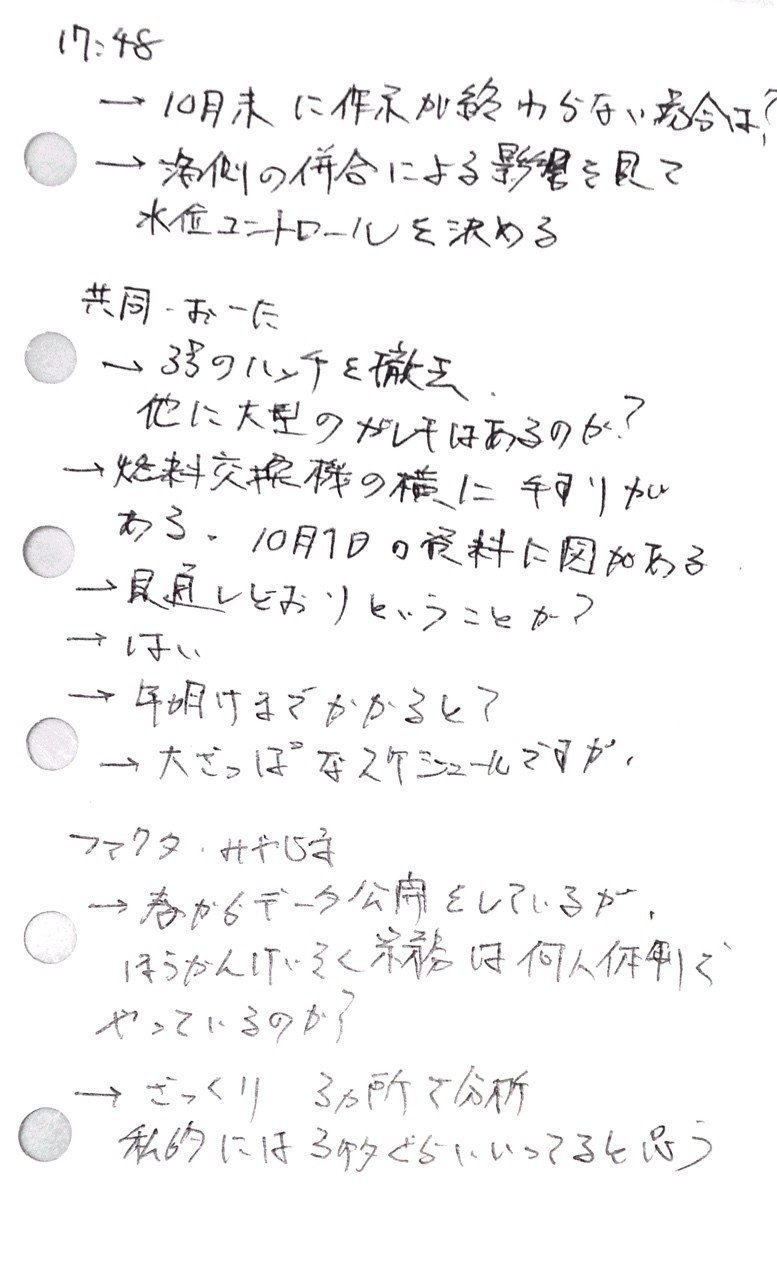 17:48
→ 10月末に作業が終わらない場合は?
→ 海側の併合による影響を見て
水位コントロールを決める
共同・おーた
→ 3号のハッチを撤去、
他に大型のガレキはあるのか?
→ 燃料交換機の横に手すりが
ある。10月1日の資料に図がある
→ 見通しどおりということか?
→ はい
→ 年明けまでかかると?
→ 大ざっぱなスケジュールですが、
ファクタ・みやじま
→ 春からデータ公開をしているが、
ほうかんけいそく業務は何人体制で
やっているのか?
→ ざっくり 3ヵ所で分析
私的には3ケタぐらいいってると思う